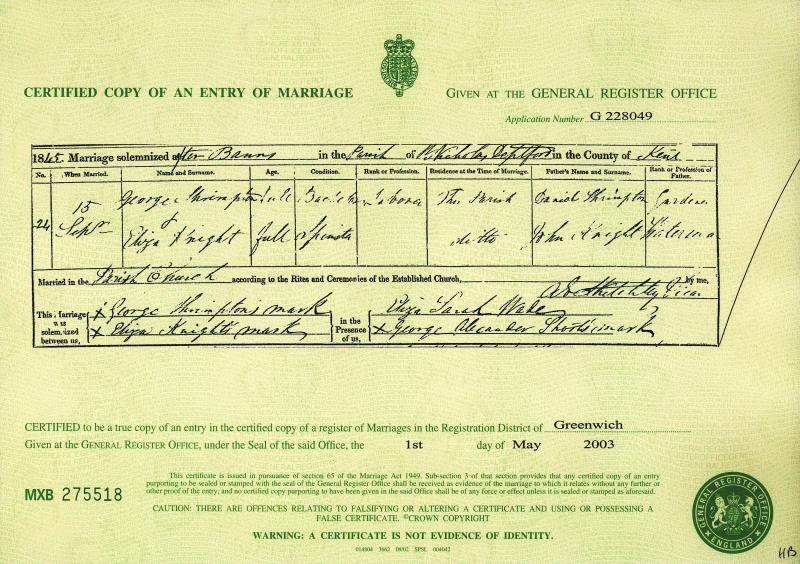 CERTIFIED COPY OF AN ENTRY OF MARRIAGE
GIVEN AT THE GENERAL REGISTER OFFICE
Application Number G 228049
1845. Marriage solemnized after Banns in the Parish of St Nicholas Deptford in the County of Kent
No. When Married. Name and Surname. Age. Condition. Rank or Profession. Residence at the Time of Marriage. Father's Name and Surname. Rank or Profession of Father.
24 15 Septr
George Thrimpton full Bachelor Labourer This Parish Daniel Thrimpton Gardener
Eliza Knight full Spinster ditto John Knight Waterman
Married in the Parish Church according to the Rites and Ceremonies of the Established Church, by me,
Vicar
This Marriage was solemnized between us,
X George Thrimpton's mark
X Eliza Knight's mark
in the Presence of us,
Eliza Sarah Wade
X George Alexander Short's mark
CERTIFIED to be a true copy of an entry in the certified copy of a register of Marriages in the Registration District of Greenwich
Given at the GENERAL REGISTER OFFICE, under the Seal of the said Office, the 1st day of May 2003
MXB 275518
This certificate is issued in pursuance of section 65 of the Marriage Act 1949. Sub-section 3 of that section provides that any certified copy of an entry
purporting to be sealed or stamped with the seal of the General Register Office shall be received as evidence of the marriage to which it relates without any further or
other proof of the entry, and no certified copy purporting to have been given in the said Office shall be of any force or effect unless it is sealed or stamped as aforesaid.
CAUTION: THERE ARE OFFENCES RELATING TO FALSIFYING OR ALTERING A CERTIFICATE AND USING OR POSSESSING A
FALSE CERTIFICATE. ©CROWN COPYRIGHT
WARNING: A CERTIFICATE IS NOT EVIDENCE OF IDENTITY.
014804 3662 09/02 SPSL 004042
GENERAL REGISTER OFFICE
ENGLAND
HB